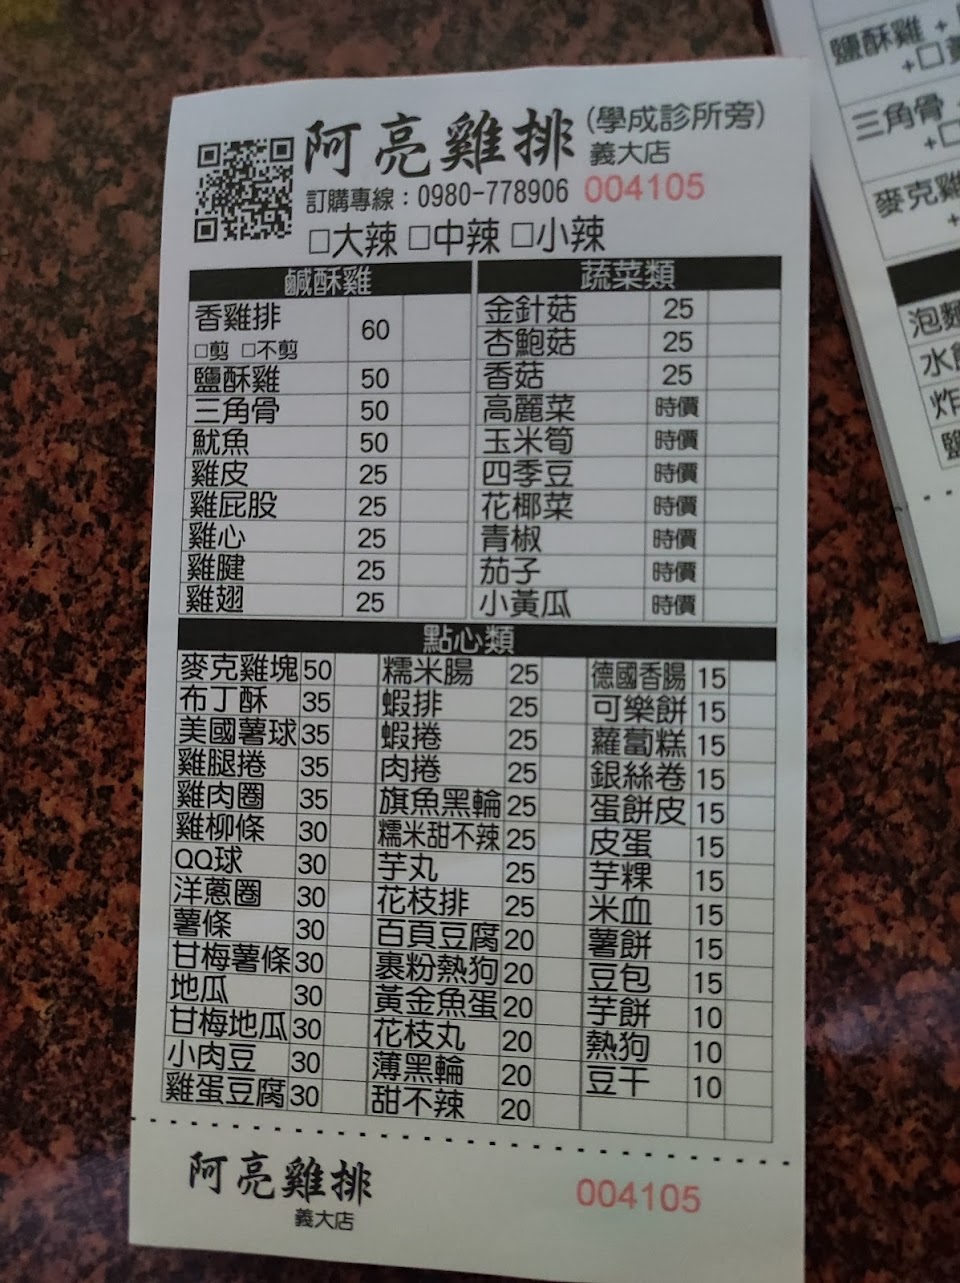 阿亮雞排 (學成診所旁)
義大店
訂購專線：0980-778906 004105
□大辣 □中辣 □小辣
鹹酥雞 蔬菜類
香雞排 □剪 □不剪 60 金針菇 25
杏鮑菇 25
鹽酥雞 50 香菇 25
三角骨 50 高麗菜 時價
魷魚 50 玉米筍 時價
雞皮 25 四季豆 時價
雞屁股 25 花椰菜 時價
雞心 25 青椒 時價
雞腱 25 茄子 時價
雞翅 25 小黃瓜 時價
點心類
麥克雞塊 50 糯米腸 25 德國香腸 15
布丁酥 35 蝦排 25 可樂餅 15
美國薯球 35 蝦捲 25 蘿蔔糕 15
雞腿捲 35 肉捲 25 銀絲卷 15
雞肉圈 35 旗魚黑輪 25 蛋餅皮 15
雞柳條 30 糯米甜不辣 25 皮蛋 15
QQ球 30 芋丸 25 芋粿 15
洋蔥圈 30 花枝排 25 米血 15
薯條 30 百頁豆腐 20 薯餅 15
甘梅薯條 30 裹粉熱狗 20 豆包 15
地瓜 30 黃金魚蛋 20 芋餅 10
甘梅地瓜 30 花枝丸 20 熱狗 10
小肉豆 30 薄黑輪 20 豆干 10
雞蛋豆腐 30 甜不辣 20
阿亮雞排 004105
義大店
鹽酥雞 +
+□
三角骨
+□
麥克雞
+
泡麵
水
炸
鹽